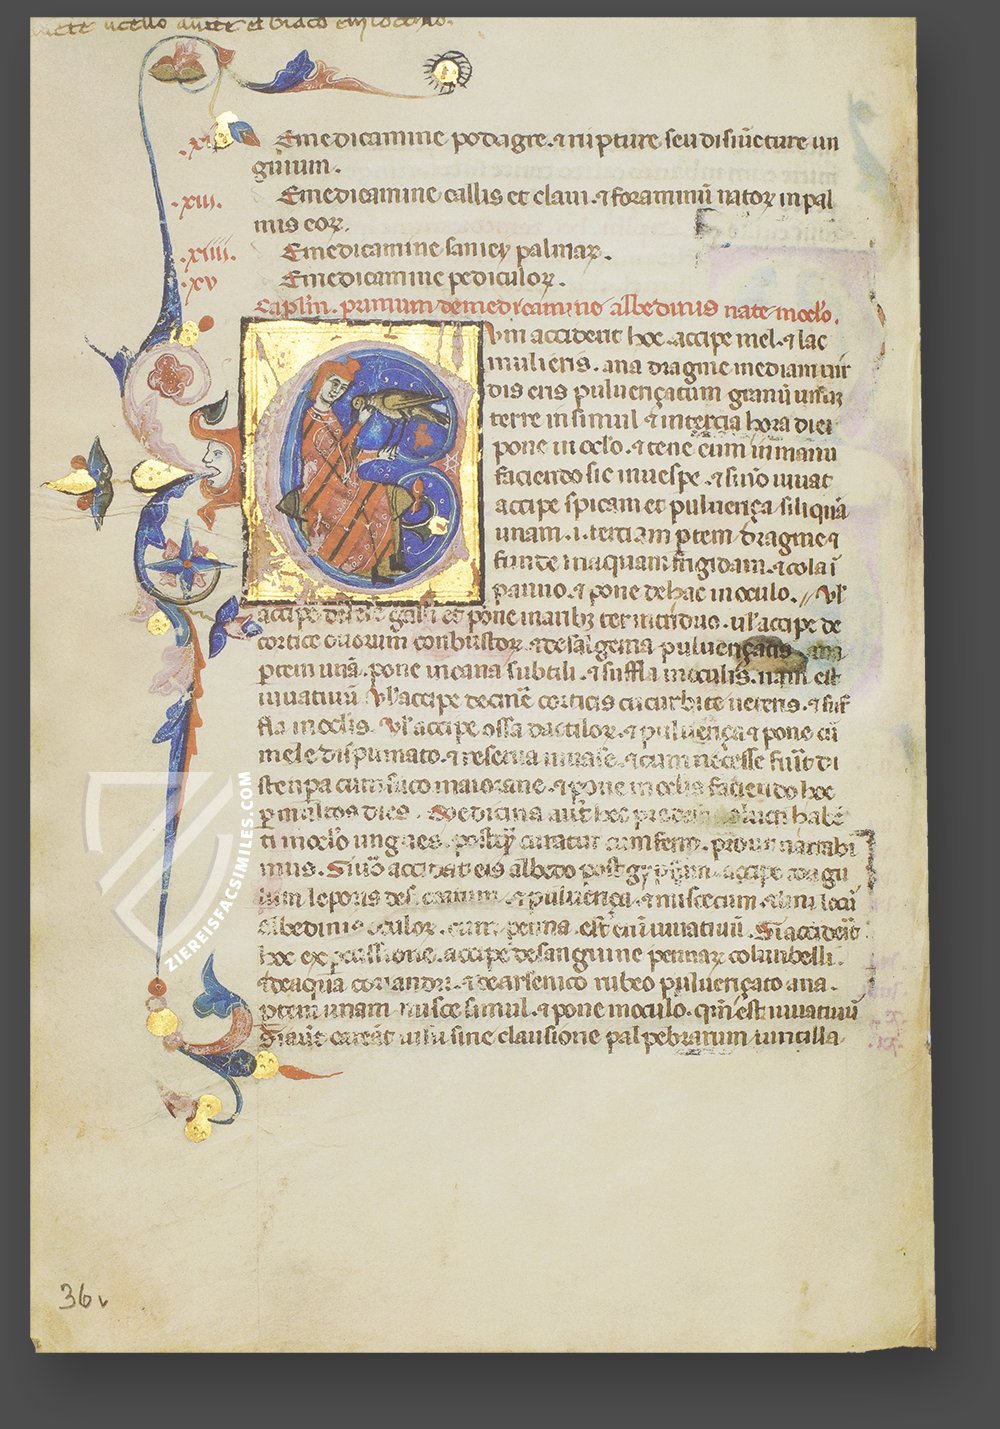 .xii. De medicamine podagre. ⁊ rupture seu disiu̅cture un
guium.
.xiii. De medicamine callis et claui. ⁊ foraminu̅ natoꝝ in pal
mis eoꝝ.
.xiiii. De medicamine saniei palmaꝝ.
.xv De medicamine pediculoꝝ.
Caplm̅. primum de medicamine albedinis nate in oclo̅.
Cum acciderit hoc. accipe mel. ⁊ lac
mulieris. ana dragme mediam
dis eris pulueriçatum granu̅
terre insimul ⁊ in tercia hora diei
pone in oclo̅. ⁊ tene eum in manu
faciendo sic in uespe. ⁊ si no̅ iuuat
accipe spicam et pulueriça siliqua̅
unam. i. terciam p̲tem dragme ⁊
funde in aquam frigidam. ⁊ cola i̅
panno. ⁊ pone de hac in oculo. Vl̅
accipe galli et pone in aribꝫ ter in triduo. ul̅ accipe de
cortice ouorum conbustoꝝ ⁊ de sal gema pulueriçatis ana
p̲tem una̅. pone in cana subtili. ⁊ suffla in oculis. nam est
iuuatiuu̅ Vl̅ accipe de cine̅ corticis cucurbite ueteris. ⁊ suf
fla in oclis. Vl̅ accipe ossa dactiloꝝ. ⁊ pulueriça ⁊ pone cu̅
mele dispumato. ⁊ reserua in uase. ⁊ cum necesse fuit̅ di
stenpa cum suco maiorane. ⁊ pone in oclis faciendo hoc
p̲ multos dies. Medicina aut̅ hec habe̅
ti in oclo̅ ungues. postq̅ curatur cum ferro. prout narrabi
mus. Si u̅o accidat eis albedo post accipe coagu
lum leporis ⁊ puluerica. ⁊ misceatum ⁊ lini locu̅
albedinis oculoꝝ. cum penna. est eni̅ iuuatiuu̅. Si accid̅it
hoc ex p̲cussione. accipe de sanguine pennaꝝ colunbelli.
⁊ de aqua coriandri. ⁊ de arsenico rubeo pulueriçato ana.
p̲tem unam. misce simul. ⁊ pone in oculo. qm̅ est iuuatiuu̅
Si aut̅ careat uisu sine clausione palpebrarum
36v
ZIEREISFACSIMILES.COM